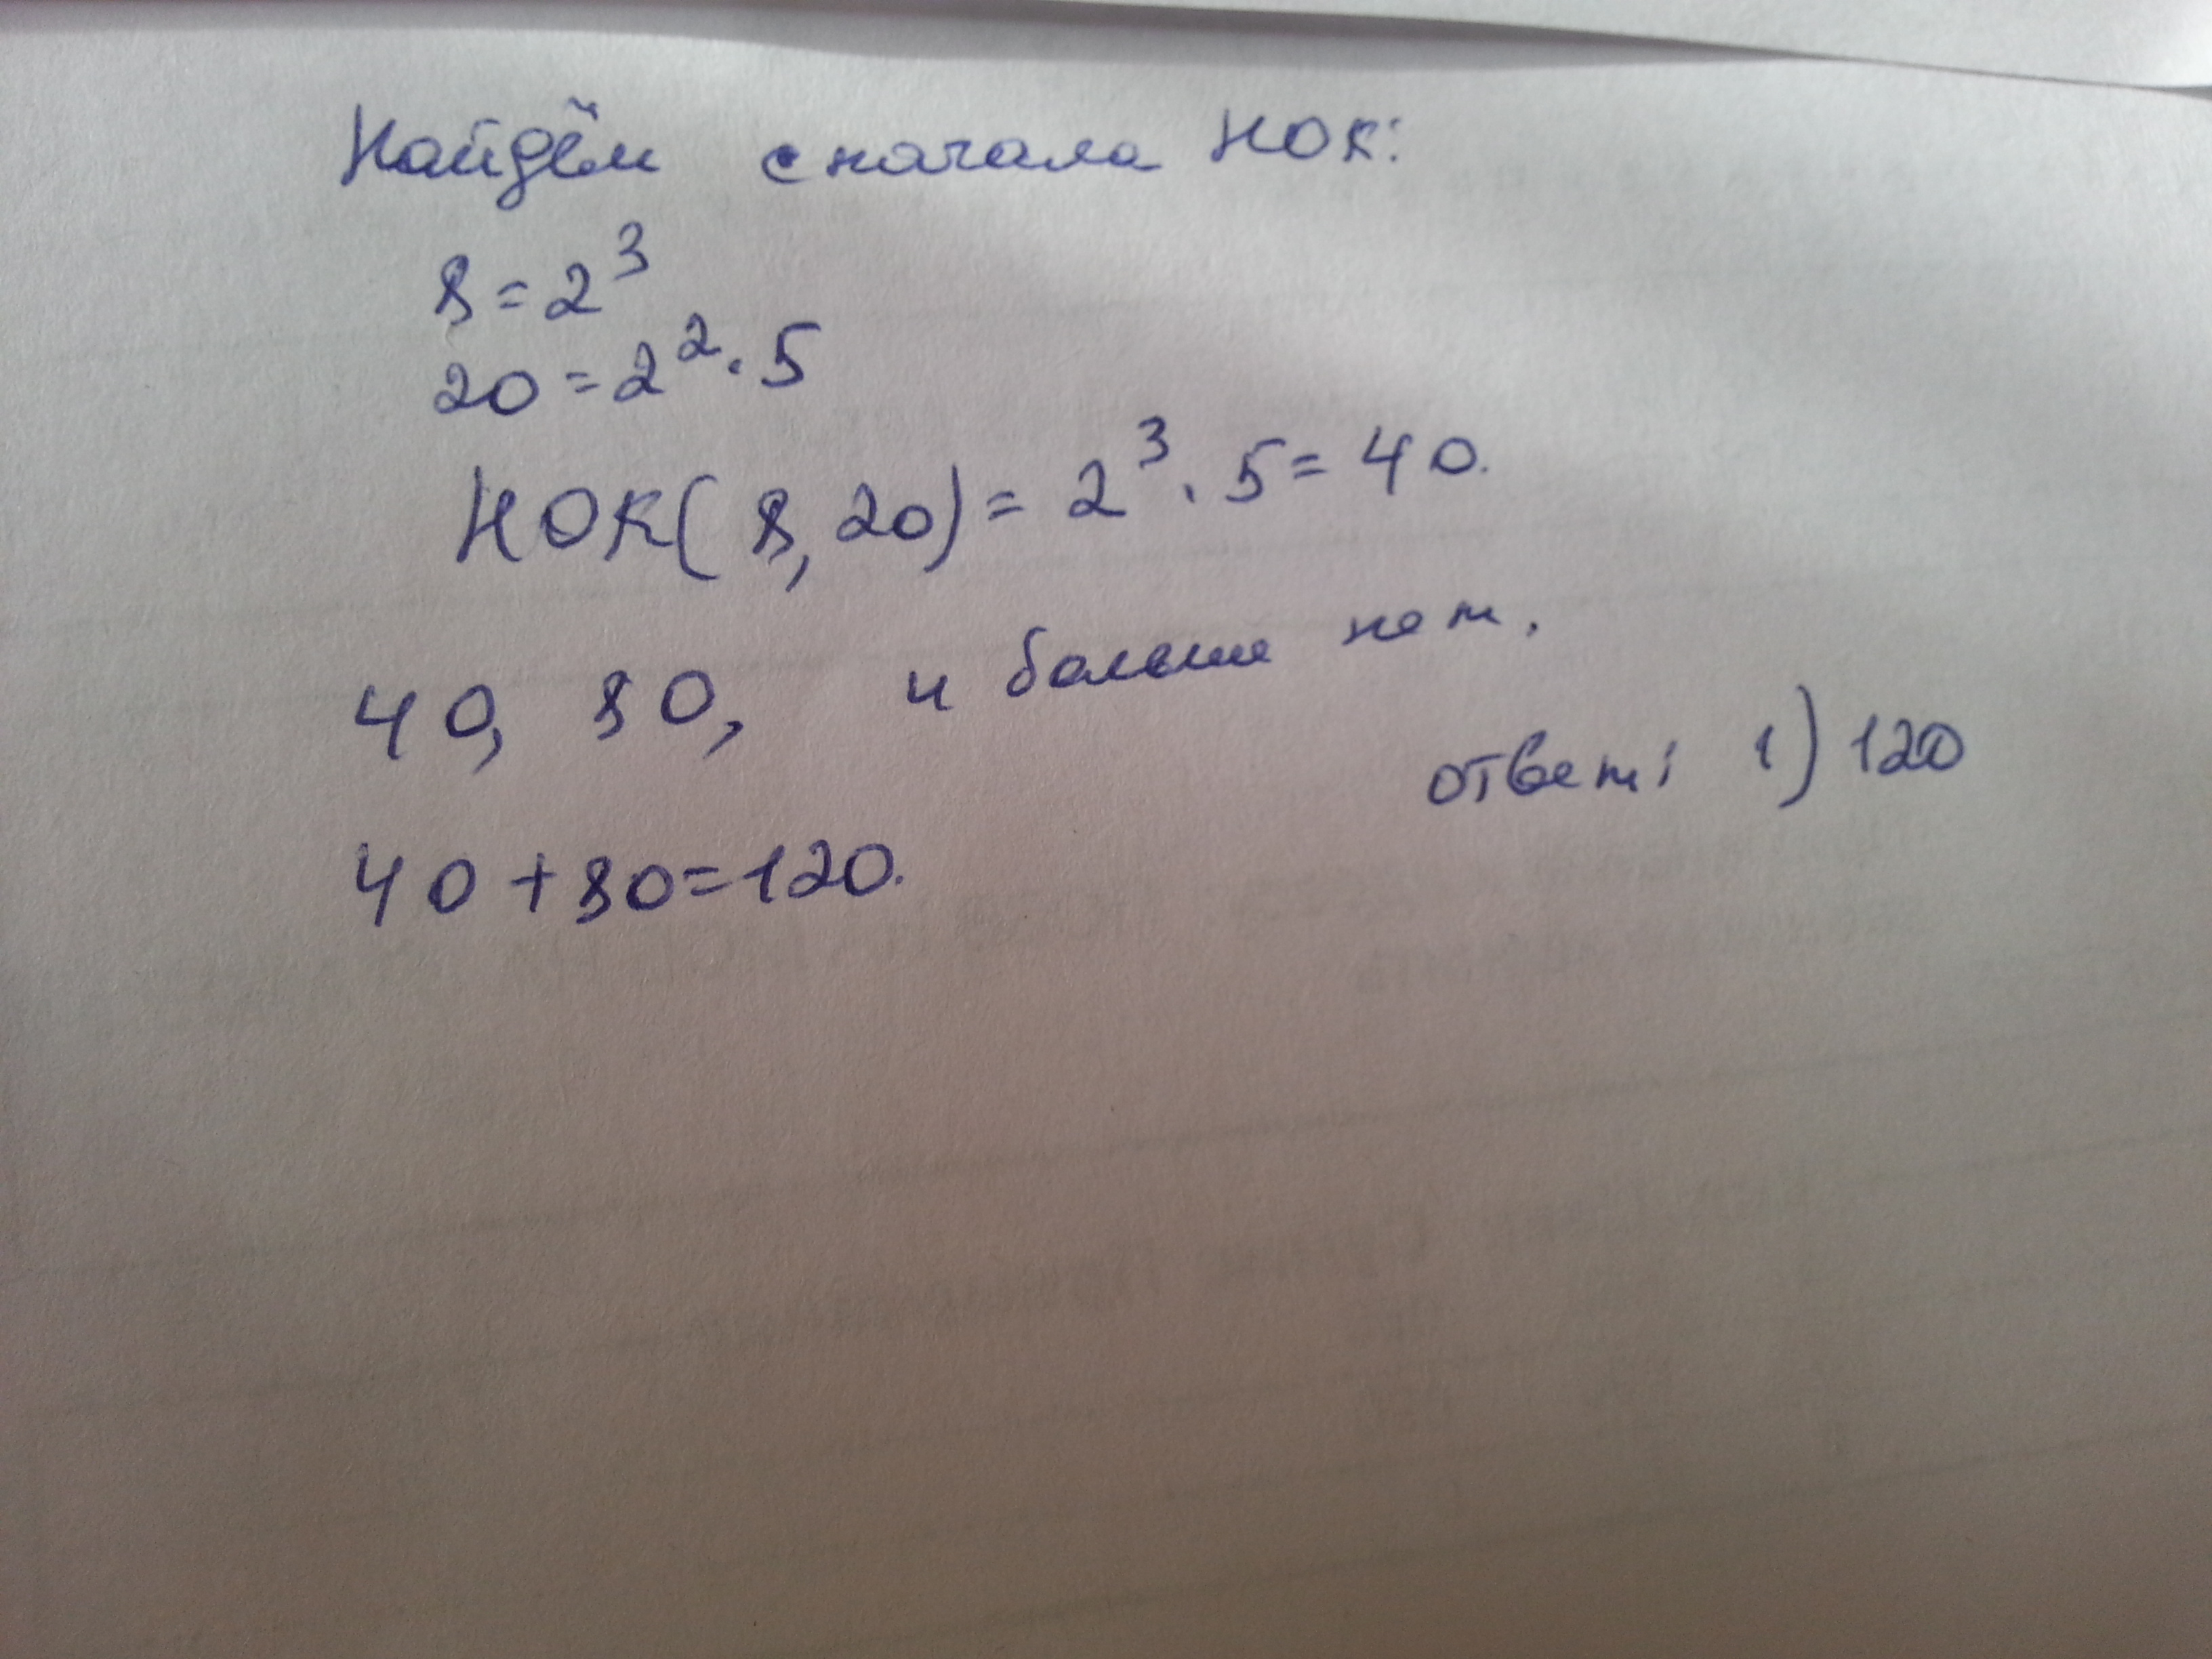 Найдём сначала НОК:
8 = 2³
20 = 2² · 5
НОК( 8, 20) = 2³ · 5 = 40.
40, 80, и больше нет.
ответ: 1) 120
40 + 80 = 120.